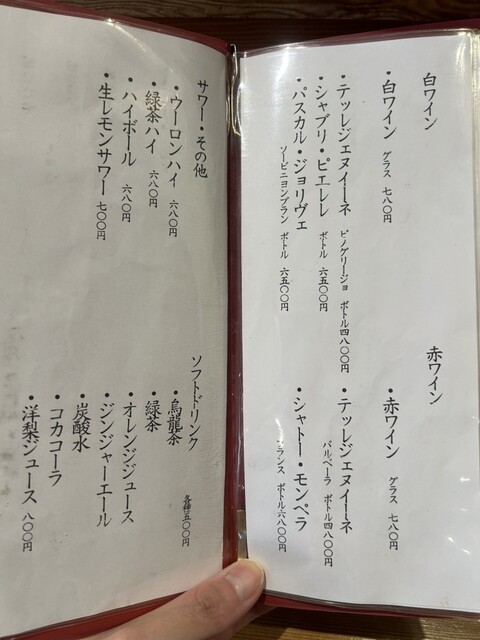 白ワイン
・白ワイン グラス 七八〇円
・テッレジェヌイーネ ピノグリージョ ボトル四八〇〇円
・シャブリ・ピエレレ ボトル 六五〇〇円
・パスカル・ジョリヴェ
ソービニヨンブラン ボトル 六五〇〇円
赤ワイン
・赤ワイン グラス 七八〇円
・テッレジェヌイーネ
バルベーラ ボトル四八〇〇円
・シャトー・モンペラ
フランス ボトル六八〇〇円
サワー・その他
・ウーロンハイ 六八〇円
・緑茶ハイ 六八〇円
・ハイボール 六八〇円
・生レモンサワー 七〇〇円
ソフトドリンク
各種五〇〇円
・烏龍茶
・緑茶
・オレンジジュース
・ジンジャーエール
・炭酸水
・コカコーラ
・洋梨ジュース 八〇〇円